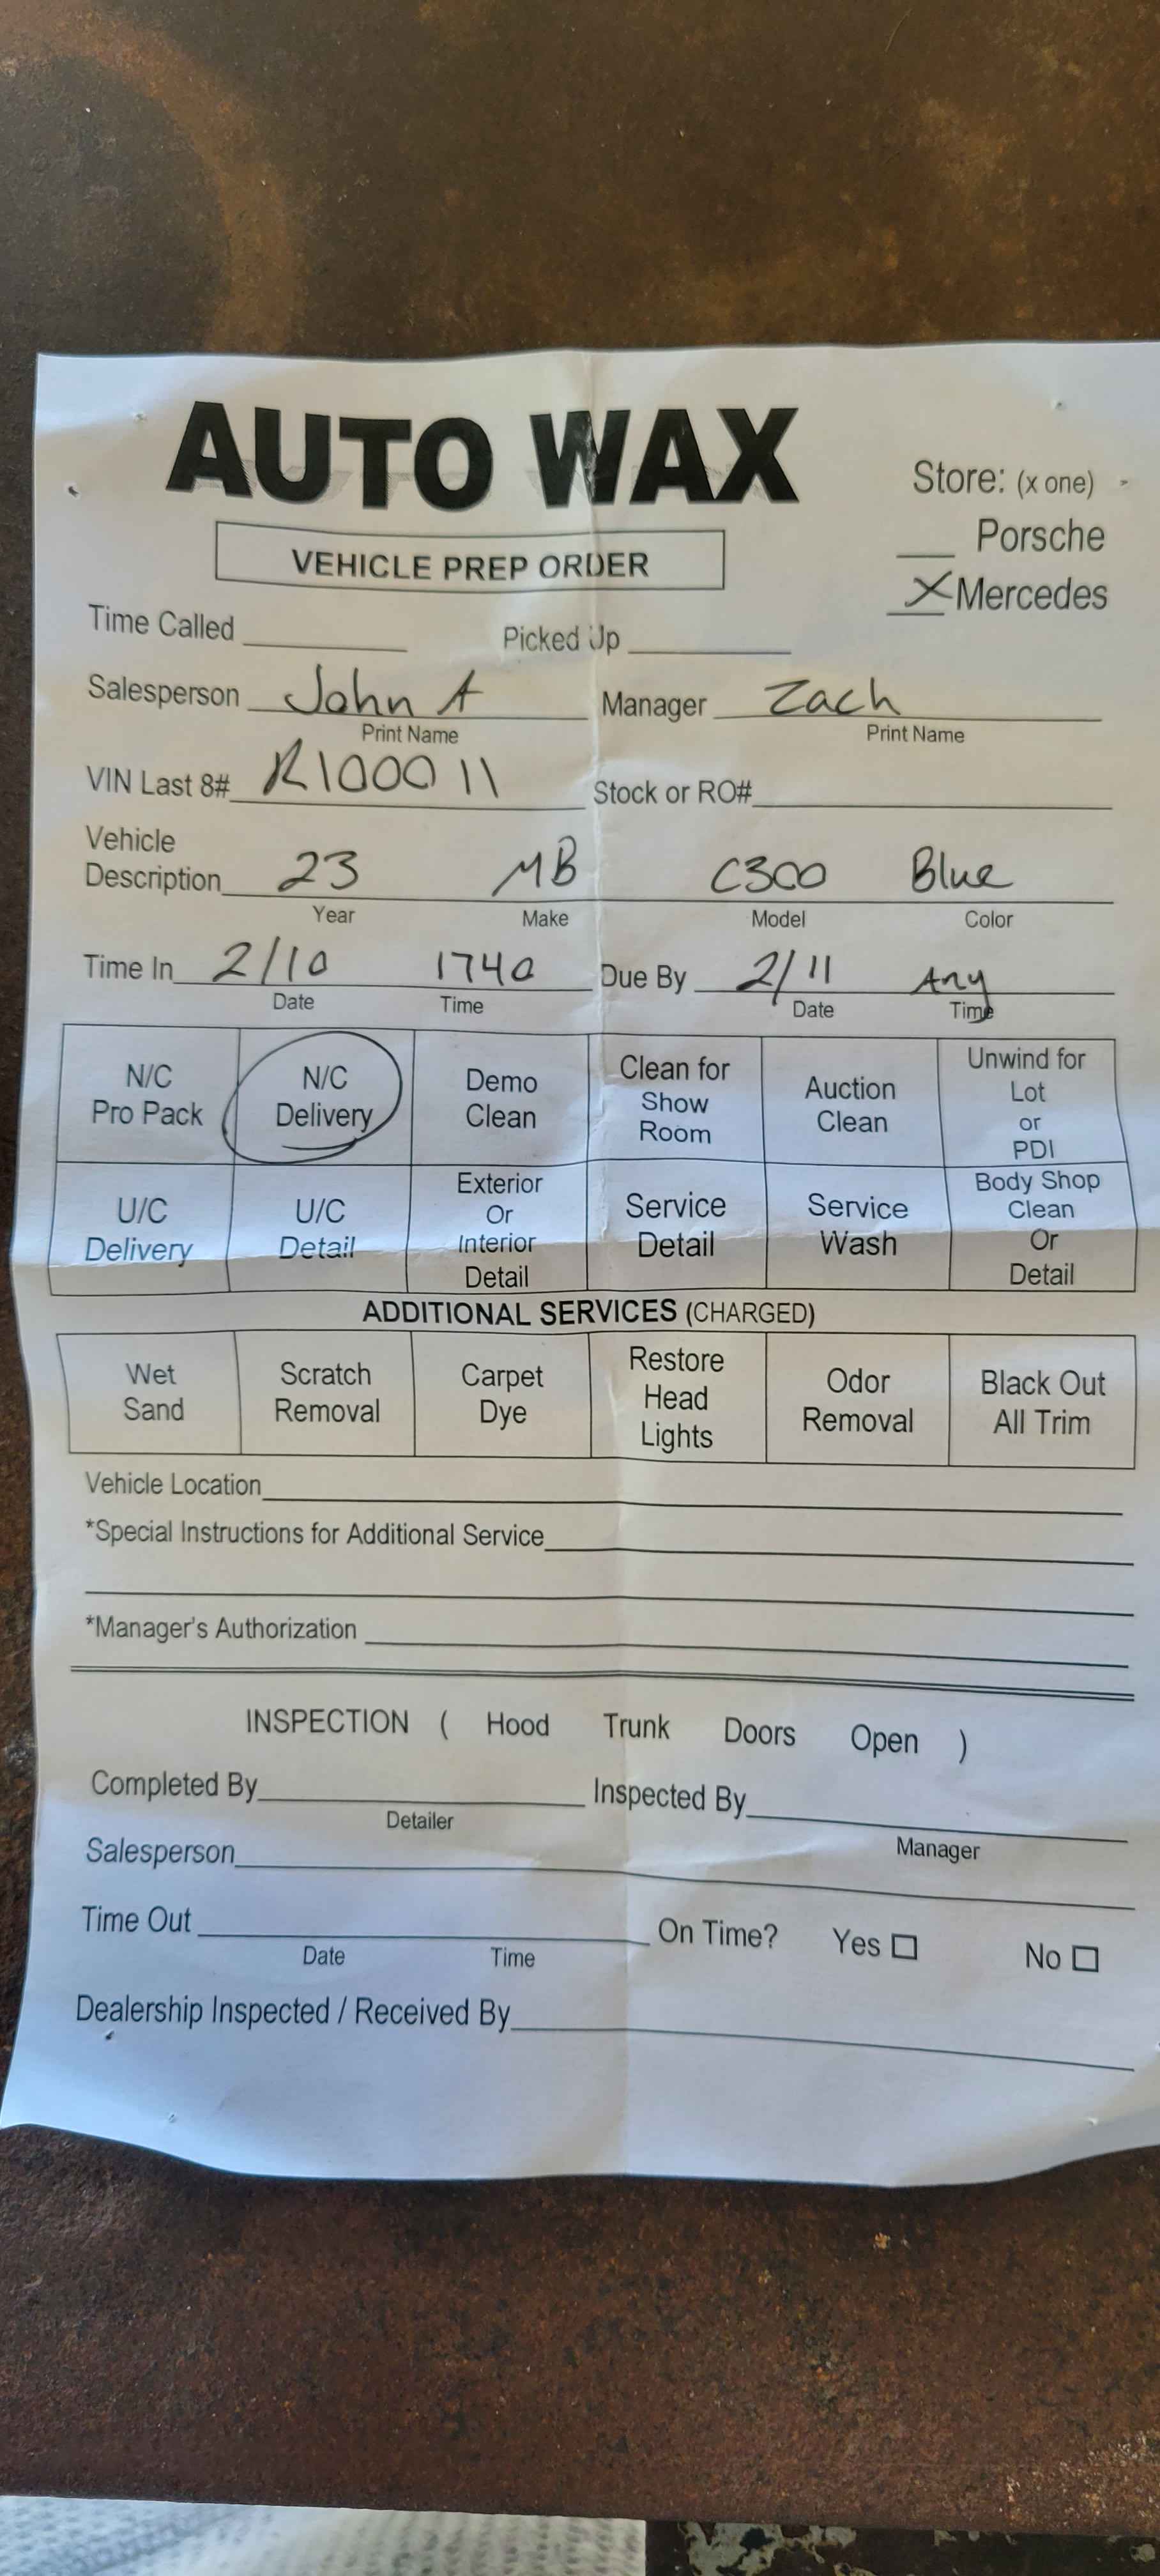 AUTO WAX
Store: (x one)
VEHICLE PREP ORDER
___ Porsche
X Mercedes
Time Called ___ Picked Up ___
Salesperson John A Manager Zach
Print Name Print Name
VIN Last 8# R100011 Stock or RO# ___
Vehicle
Description 23 MB C300 Blue
Year Make Model Color
Time In 2/10 1740 Due By 2/11 Any
Date Time Date Time
N/C Pro Pack N/C Delivery Demo Clean Clean for Show Room Auction Clean Unwind for Lot or PDI
U/C Delivery U/C Detail Exterior Or Interior Detail Service Detail Service Wash Body Shop Clean Or Detail
ADDITIONAL SERVICES (CHARGED)
Wet Sand Scratch Removal Carpet Dye Restore Head Lights Odor Removal Black Out All Trim
Vehicle Location ___
*Special Instructions for Additional Service ___
*Manager's Authorization ___
INSPECTION ( Hood Trunk Doors Open )
Completed By ___ Inspected By ___
Detailer Manager
Salesperson ___
Time Out ___ On Time? Yes ☐ No ☐
Date Time
Dealership Inspected / Received By ___